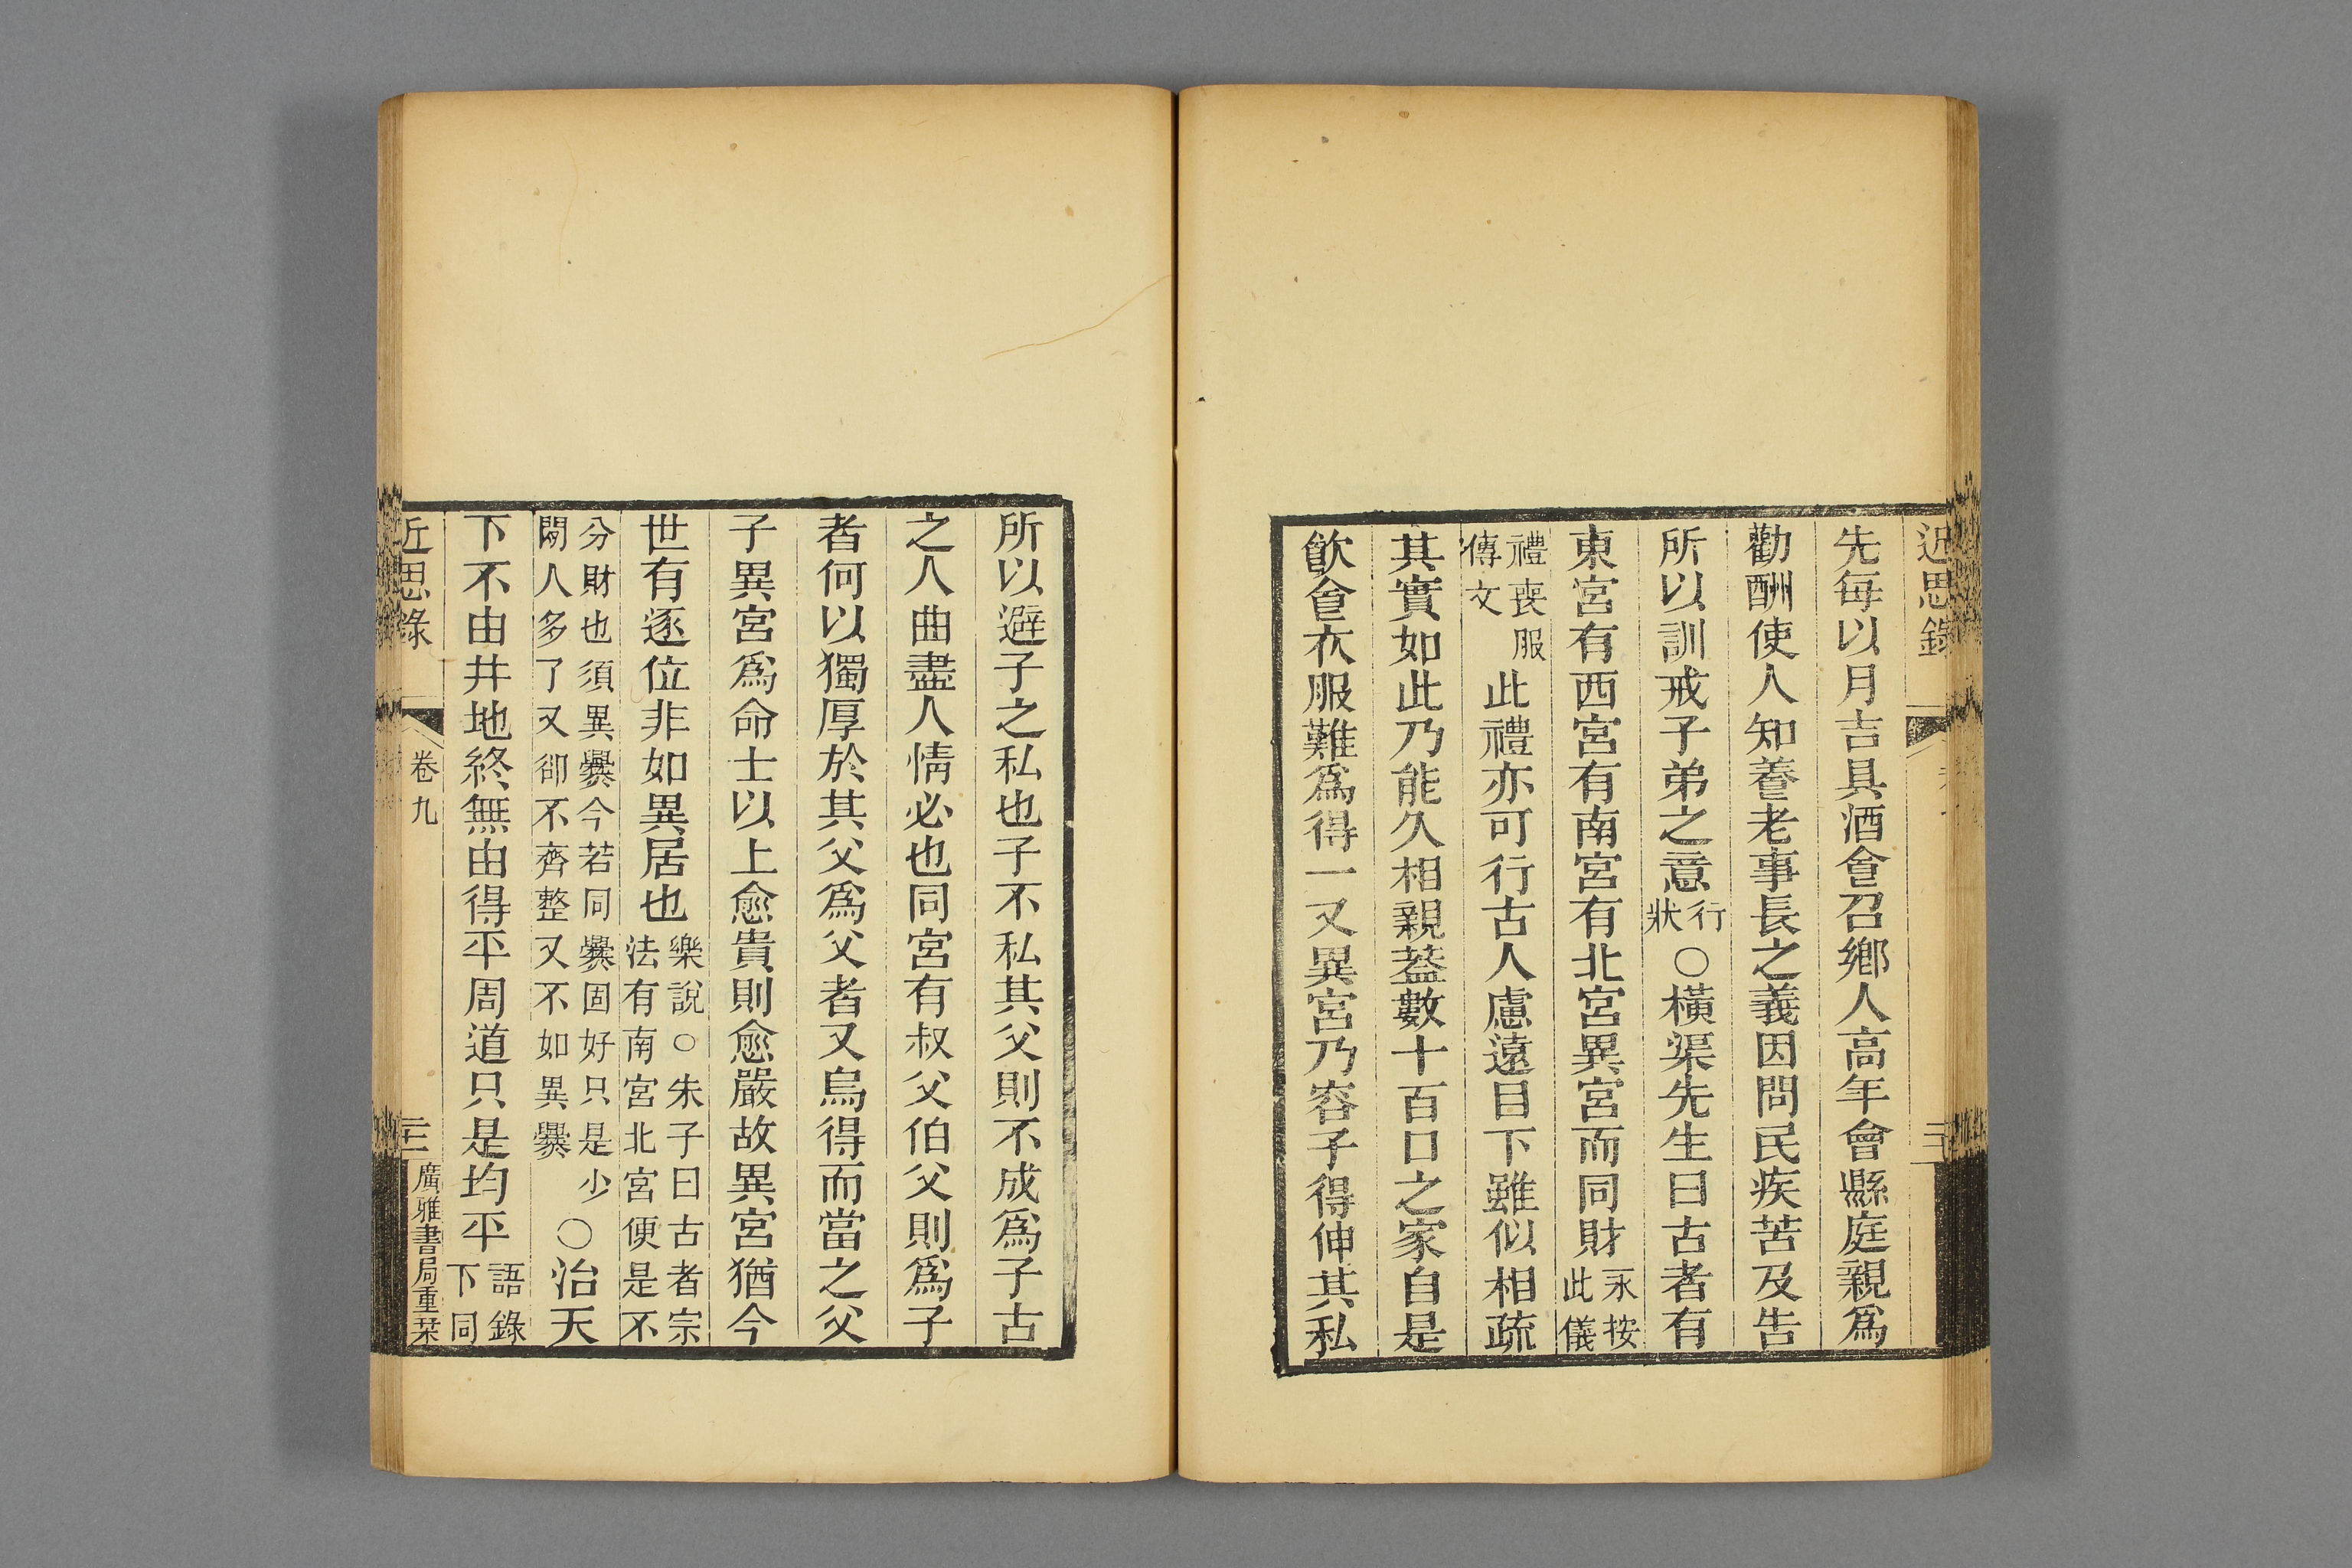 近思錄
先每以月吉具酒食召鄉人高年會縣庭親爲
勸酬使人知養老事長之義因問民疾苦及告
所以訓戒子弟之意行狀○橫渠先生曰古者有
東宮有西宮有南宮有北宮異宮而同財永按此儀
禮喪服傳文此禮亦可行古人慮遠目下雖似相疏
其實如此乃能久相親葢數十百口之家自是
飮食衣服難爲得一又異宮乃容子得伸其私
所以避子之私也子不私其父則不成爲子古
之人曲盡人情必也同宮有叔父伯父則爲子
者何以獨厚於其父爲父者又烏得而當之父
子異宮爲命士以上愈貴則愈嚴故異宮猶今
世有逐位非如異居也樂說○朱子曰古者宗法有南宮北宮便是不
分財也須異爨今若同爨固好只是少閒人多了又卻不齊整又不如異爨○治天
下不由井地終無由得平周道只是均平語錄下同
近思錄 卷九 廣雅書局重栞